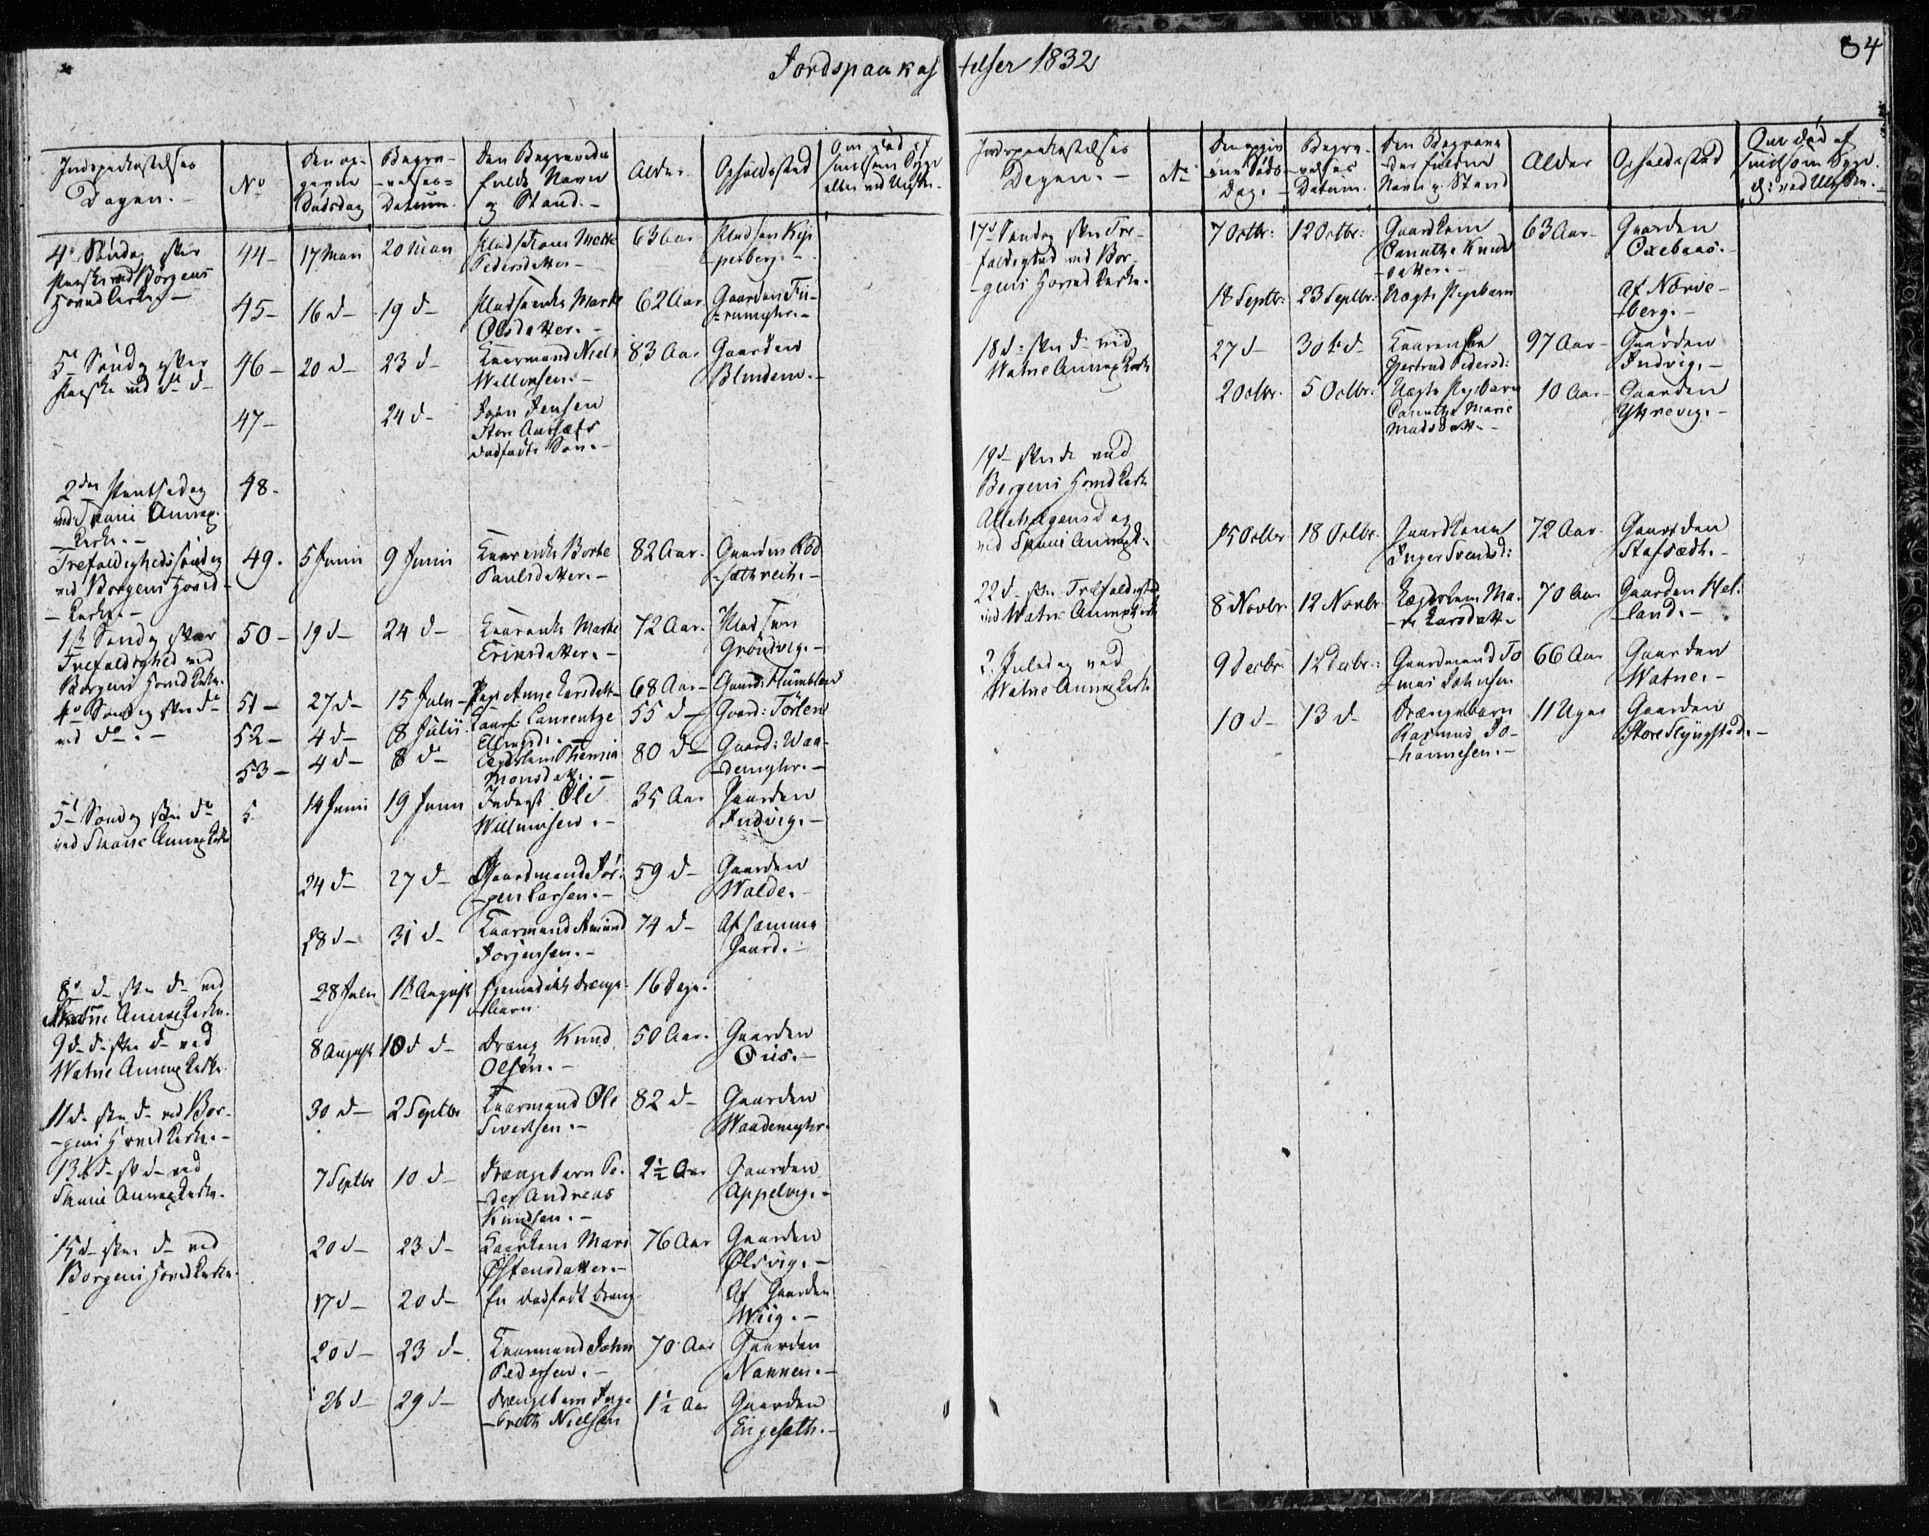 Jordspaakastelser 1832
84
Jordspaakastelses
Dagen. -
No
Den op-
givne
Dødsdag
Begra-
velses-
Datum.
Den Begravedes
fulde Navn
og Stand. -
Alder
Opholdssted
Om død af
smitsom Syge
eller ved
4de Søndag efter
Paaske ved Borgens
Hoved Kirke. -
44-
17 Maii
20 Maii
Pladskone Mette
Pedersdatter -
63 Aar
Pladsen Kip
perberg. -
45-
16 d-
19 d-
Pladsenke Marte
Olsdatter. -
62 Aar.
5te Søndag efter
Paaske ved do d-
46-
20 d-
23 d-
Kaarmand Niels
Willumsen. -
83 Aar
Gaarden
Blindem. -
47-
24 d-
Jørn Jensen
Store
dødfødte Søn. -
2den Pintsedag
ved Skaue Annex
Kirke. -
48.
Trefoldighedssøndag
ved Borgens Hoved
Kirke. -
49.
5 Junii
9 Junii
Kaarenke Borte
Paulsdatter. -
82 Aar.
Gaarden Rød
sæthreit. -
1ste Søndag efter
Trefoldighed ved
Borgens Hoved Kirke.
50-
19 d-
24 d-
Kaarenke Marte
Eriksdatter. -
72 Aar.
Pladsen
Grøndvig. -
4de Søndag efter do
ved do. -
51-
27 d-
15 Julii
Pige Anne Larsdatt-
68 Aar-
Gaard: Flembland
52-
4 d-
8 Julii
Laurentze
55 d-
Gaard: Tørlen
53-
4 d-
8 d-
Monsdatt. -
80 d-
Gaard: Waa-
demyhr. -
5te Søndag efter do
ved Skaue Annex Kirke
5.
14 Junii
19 Junii
Inderst Ole
Willumsen. -
35 Aar
Gaarden
Indvig. -
24 d-
27 d-
Gaardmand Jør-
gen Larsen. -
59 d-
Gaarden
Walde. -
28 d-
31 d-
Kaarmand Amund
Jørgensen. -
74 d-
Af samme
Gaard. -
8de d- efter d- ved
Annex Kirke.
28 Julii
1ste August
Drenge-
barn.
16 Dage.
9de d- efter d- ved
Watne Annex Kirke
8 August
10 d d-
Dreng Knud
Olsen. -
50 Aar.
Gaarden
11 d- efter d- ved Bor-
gens Hoved Kirke. -
30 d-
2 Septbr
Kaarmand Ole
Sivertsen. -
82 d-
Gaarden
Waademyhr.
13de d- ef d- ved
Skaue Annex Kirke. -
7 Septbr
10 d-
Drengebarn Pe-
der Andreas
Knudsen. -
2½ Aar
Gaarden
Appelvig. -
15 d- efter d- ved
Borgens Hoved Kirke.
20 d-
23 d-
Kaarkone Mari
Østensdatter. -
76 Aar
Gaarden
Ølsvig. -
17 d-
20 d-
En dødfødt Dreng
Af Gaarden
Wiig. -
20 d-
23 d-
Kaarmand John
Pedersen. -
70 Aar
Gaarden
26 d-
29 d-
Drengebarn Inge-
breth Nielsen
1½ Aar
Gaarden
Engesæth. -
Jordspaakastelses
Dagen. -
No
Den opgiv
ne Døds
Dag. -
Begra-
velses
Datum.
Den Begrave
des fulde
Navn og Stand
Alder
Opholdssted
Om død af
smitsom Syge
el: ved
17de Søndag efter Tre-
foldighed ved Bor-
gens Hoved Kirke.
7 Octbr:
12 Octbr:
Gaardkone
Knuds
datter. -
63 Aar-
Gaarden
Oxebaas. -
18 Septbr:
23 Septbr:
Uægte Pigebarn
af Nærve-
berg. -
18 d: efter d- ved
Watne Annex Kirke
27 d-
30te d-
Kaarenke
Gjertrud Pedersd:
97 Aar-
Gaarden
Indvig. -
2 Octbr.
5 Octbr.
Uægte Pigebarn
Marie
Madsdatt. -
10 Aar-
Gaarden
Yttrevig. -
19 d- efter d- ved
Borgens Hoved Kirke
Allehelgensdag
ved Skaue Annex K.
15 Octbr
18 Octbr.
Gaardkone
Inger Svends:
72 Aar.
Gaarden
Stafsæth. -
22 d- efter Trefoldighed
ved Watne Annex Kirke
8 Novbr.
12 Novbr.
Ma-
rte Larsdatt.
70 Aar
Gaarden Hel-
land. -
2. Juledag ved
Watne Annex Kirke
9 Decbr
12 Decbr.:
Gaardmand To-
mas Johnsen
66 Aar
Gaarden
Watne. -
10 d-
13 d-
Drengebarn
Rasmus Jo-
hannesen. -
11 Uger
Gaarden
Store Slyngstad. -